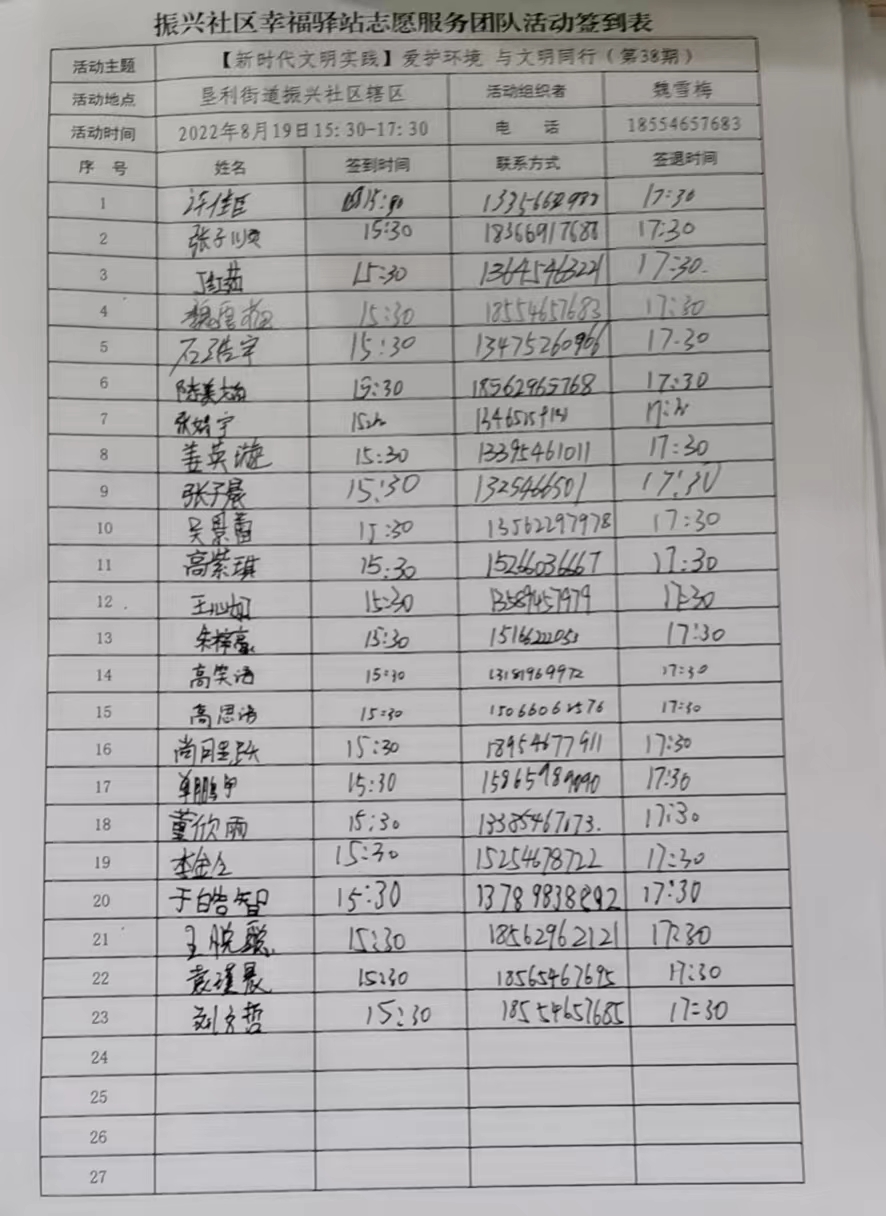 振兴社区幸福驿站志愿服务团队活动签到表
活动主题 【新时代文明实践】爱护环境 与文明同行（第38期）
活动地点 垦利街道振兴社区辖区 活动组织者 魏雪梅
活动时间 2022年8月19日15:30-17:30 电 话 18554657683
序 号 姓名 签到时间 联系方式 签退时间
1 17:30
2 张子顺 15:30 18366917688 17:30
3 15:30 13645463221 17:30.
4 魏雪梅 15:30 18554657683 17:30
5 石浩宇 15:30 13475260966 17:30
6 15:30 18562965768 17:30
7 张婧宇
8 姜英漩 15:30 13395461011 17:30
9 张子晨 15:30 1325466501 17:30
10 吴景蕾 15:30 13562297978 17:30
11 高紫琪 15:30 15266036667 17:30
12 王心如 15:30 13589457979 17:30
13 朱梓豪 15:30 17:30
14 高笑语 15:30 13181969972 17:30
15 高思语 15:30 15066062576 17:30
16 15:30 18954677911 17:30
17 15:30 17:30
18 董欣雨 15:30 17:30
19 15:30 15254678722 17:30
20 于皓智 15:30 17:30
21 王悦聪 15:30 18562962121 17:30
22 袁瑾晨 15:30 18565467695 17:30
23 刘文哲 15:30 18554657685 17:30
24
25
26
27